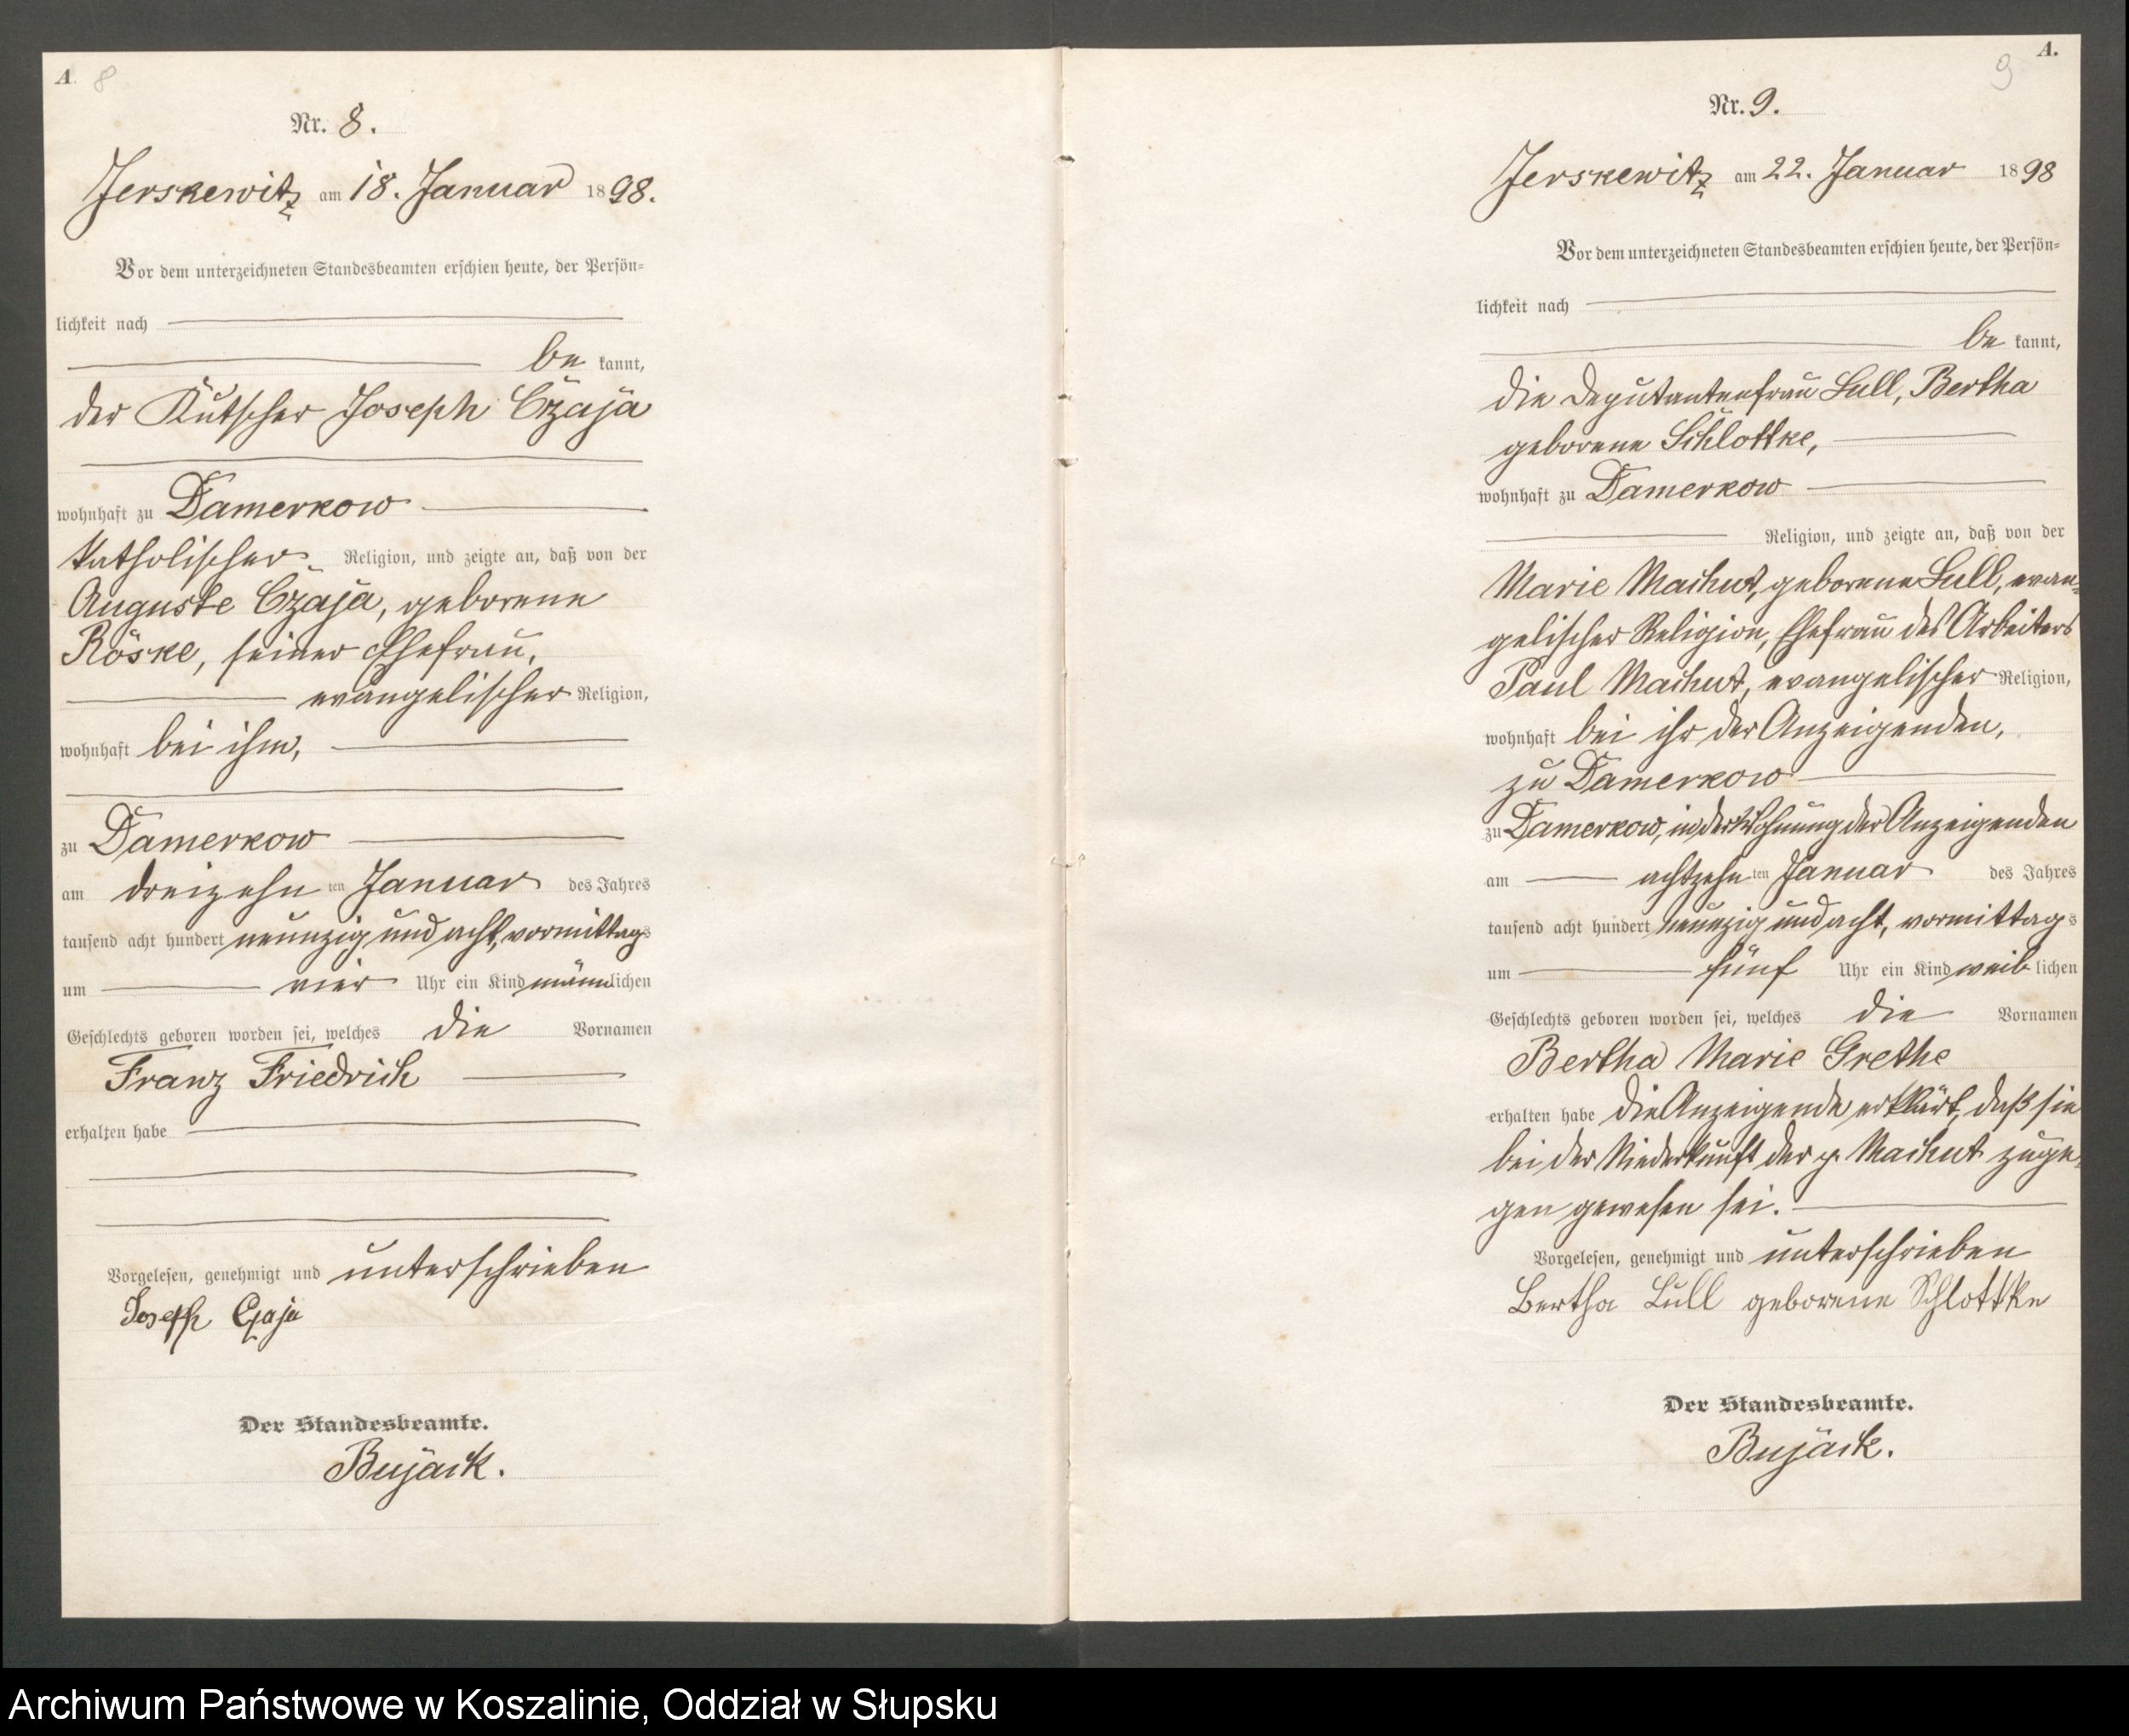 A. 8
Nr. 8.
Jerskewitz am 18. Januar 1898.
Vor dem unterzeichneten Standesbeamten erschien heute, der Persön-
lichkeit nach
be kannt,
der Kutscher Joseph Czaja
wohnhaft zu Damerkow
katholischer Religion, und zeigte an, daß von der
Auguste Czaja, geborene
Röske, seiner Ehefrau,
evangelischer Religion,
wohnhaft bei ihm,
zu Damerkow
am dreizehn ten Januar des Jahres
tausend acht hundert neunzig und acht, vormittags
um vier Uhr ein Kind männlichen
Geschlechts geboren worden sei, welches die Vornamen
Franz Friedrich
erhalten habe
Vorgelesen, genehmigt und unterschrieben
Joseph Czaja
Der Standesbeamte.
Bujack.
9 A.
Nr. 9.
Jerskewitz am 22. Januar 1898
Vor dem unterzeichneten Standesbeamten erschien heute, der Persön-
lichkeit nach
be kannt,
die Deputantenfrau Lull, Bertha
geborene Schlottke,
wohnhaft zu Damerkow
Religion, und zeigte an, daß von der
Marie Machut, geborene Lull, evan-
gelischer Religion, Ehefrau des Arbeiters
Paul Machut, evangelischer Religion,
wohnhaft bei ihr der Anzeigenden,
zu Damerkow
zu Damerkow, in der Wohnung der Anzeigenden
am achtzehn ten Januar des Jahres
tausend acht hundert neunzig und acht, vormittags
um fünf Uhr ein Kind weib lichen
Geschlechts geboren worden sei, welches die Vornamen
Bertha Marie Grethe
erhalten habe die Anzeigende erklärt, daß sie
bei der Niederkunft der p. Machut zuge-
gen gewesen sei.
Vorgelesen, genehmigt und unterschrieben
Bertha Lull geborene Schlottke
Der Standesbeamte.
Bujack.
Archiwum Państwowe w Koszalinie, Oddział w Słupsku